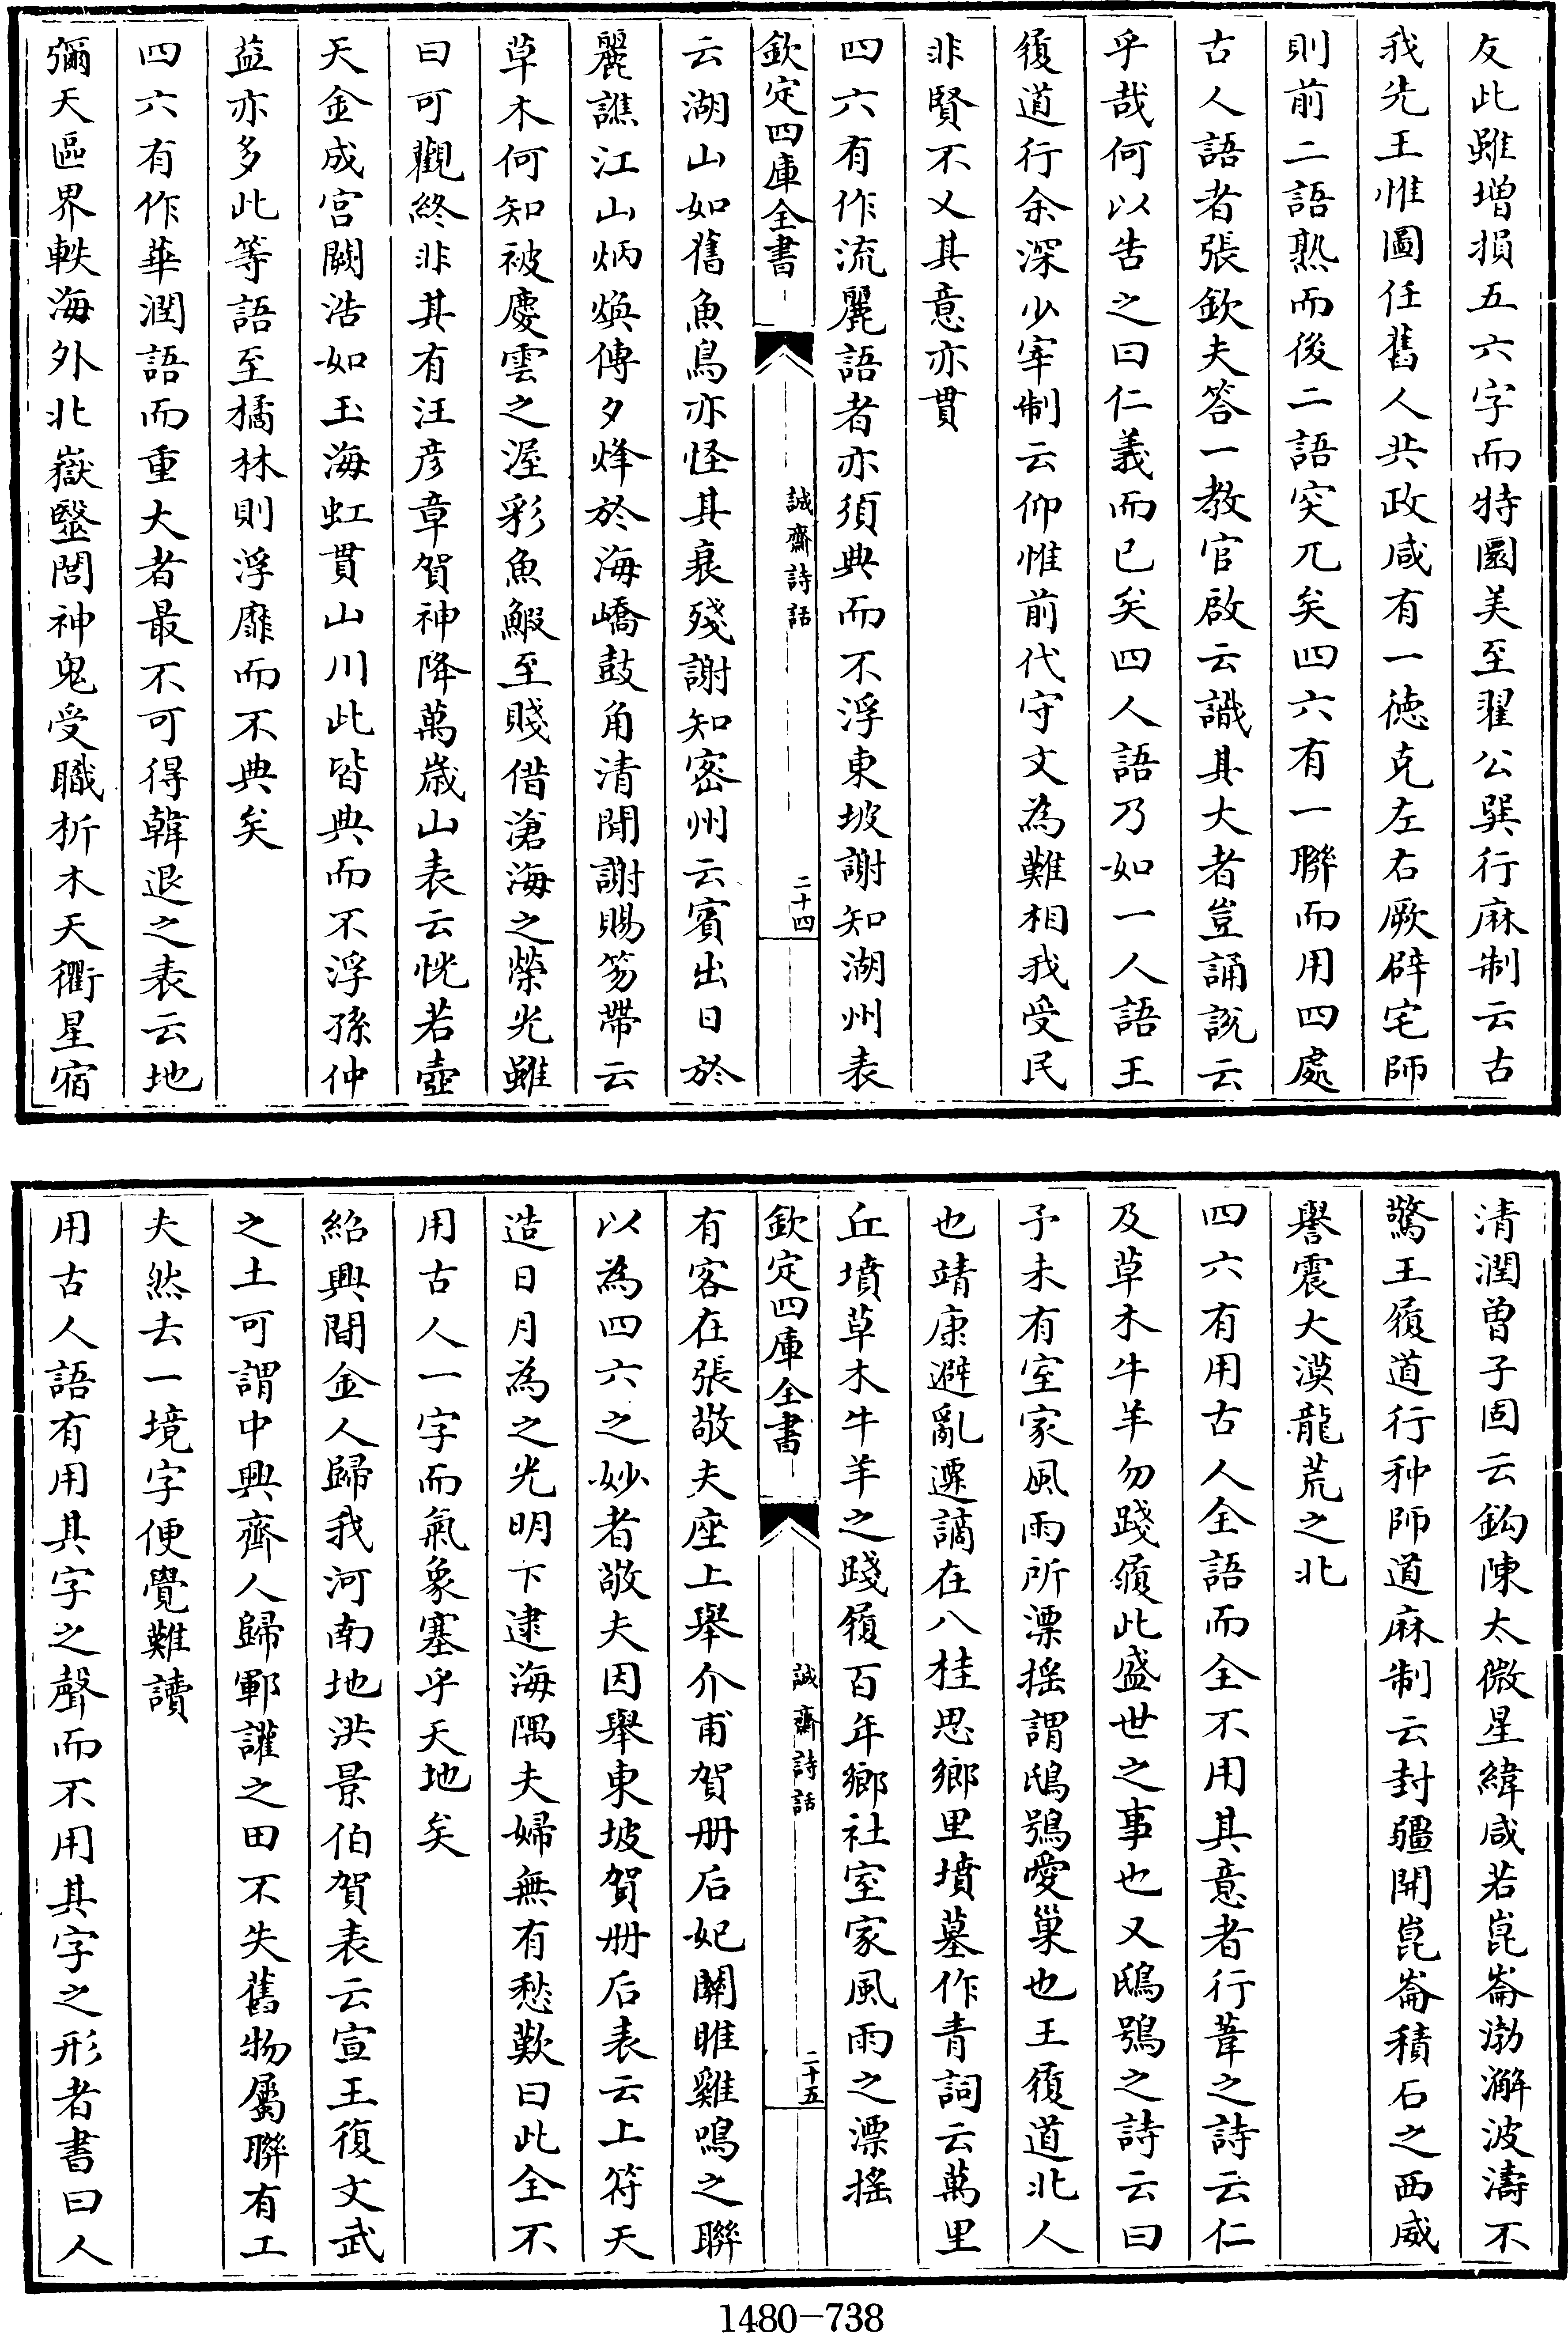 友此雖增損五六字而特圜美至翟公巽行麻制云古
我先王惟圖任舊人共政咸有一徳克左右厥辟宅師
則前二語熟而後二語突兀矣四六有一聯而用四處
古人語者張欽夫答一教官啟云識其大者豈誦說云
乎哉何以告之曰仁義而已矣四人語乃如一人語王
履道行余深少宰制云仰惟前代守文為難相我受民
非賢不乂其意亦貫
四六有作流麗語者亦須典而不浮東坡謝知湖州表
欽定四庫全書
誠齋詩話
二十四
云湖山如舊魚鳥亦怪其衰殘謝知密州云賓出日於
麗譙江山炳煥傳夕烽於海嶠鼓角清閒謝賜笏帶云
草木何知被慶雲之渥彩魚鰕至賤借滄海之榮光雖
曰可觀終非其有汪彦章賀神降萬歳山表云恍若壺
天金成宫闕浩如玉海虹貫山川此皆典而不浮孫仲
益亦多此等語至橘林則浮靡而不典矣
四六有作華潤語而重大者最不可得韓退之表云地
彌天區界軼海外北嶽毉閭神鬼受職析木天衢星宿
清潤曽子固云鈎陳太微星緯咸若崑崙渤澥波濤不
驚王履道行种師道麻制云封疆開崑崙積石之西威
譽震大漠龍荒之北
四六有用古人全語而全不用其意者行葦之詩云仁
及草木牛羊勿踐履此盛世之事也又鴟鴞之詩云曰
予未有室家風雨所漂揺謂鴟鴞愛巢也王履道北人
也靖康避亂遷謫在八桂思鄉里墳墓作青詞云萬里
丘墳草木牛羊之踐履百年鄉社室家風雨之漂揺
欽定四庫全書
誠齋詩話
二十五
有客在張敬夫座上舉介甫賀册后妃關雎雞鳴之聯
以為四六之妙者敬夫因舉東坡賀册后表云上符天
造日月為之光明下逮海隅夫婦無有愁歎曰此全不
用古人一字而氣象塞乎天地矣
紹興間金人歸我河南地洪景伯賀表云宣王復文武
之土可謂中興齊人歸鄆讙之田不失舊物屬聯有工
夫然去一境字便覺難讀
用古人語有用其字之聲而不用其字之形者書曰人
1480-738